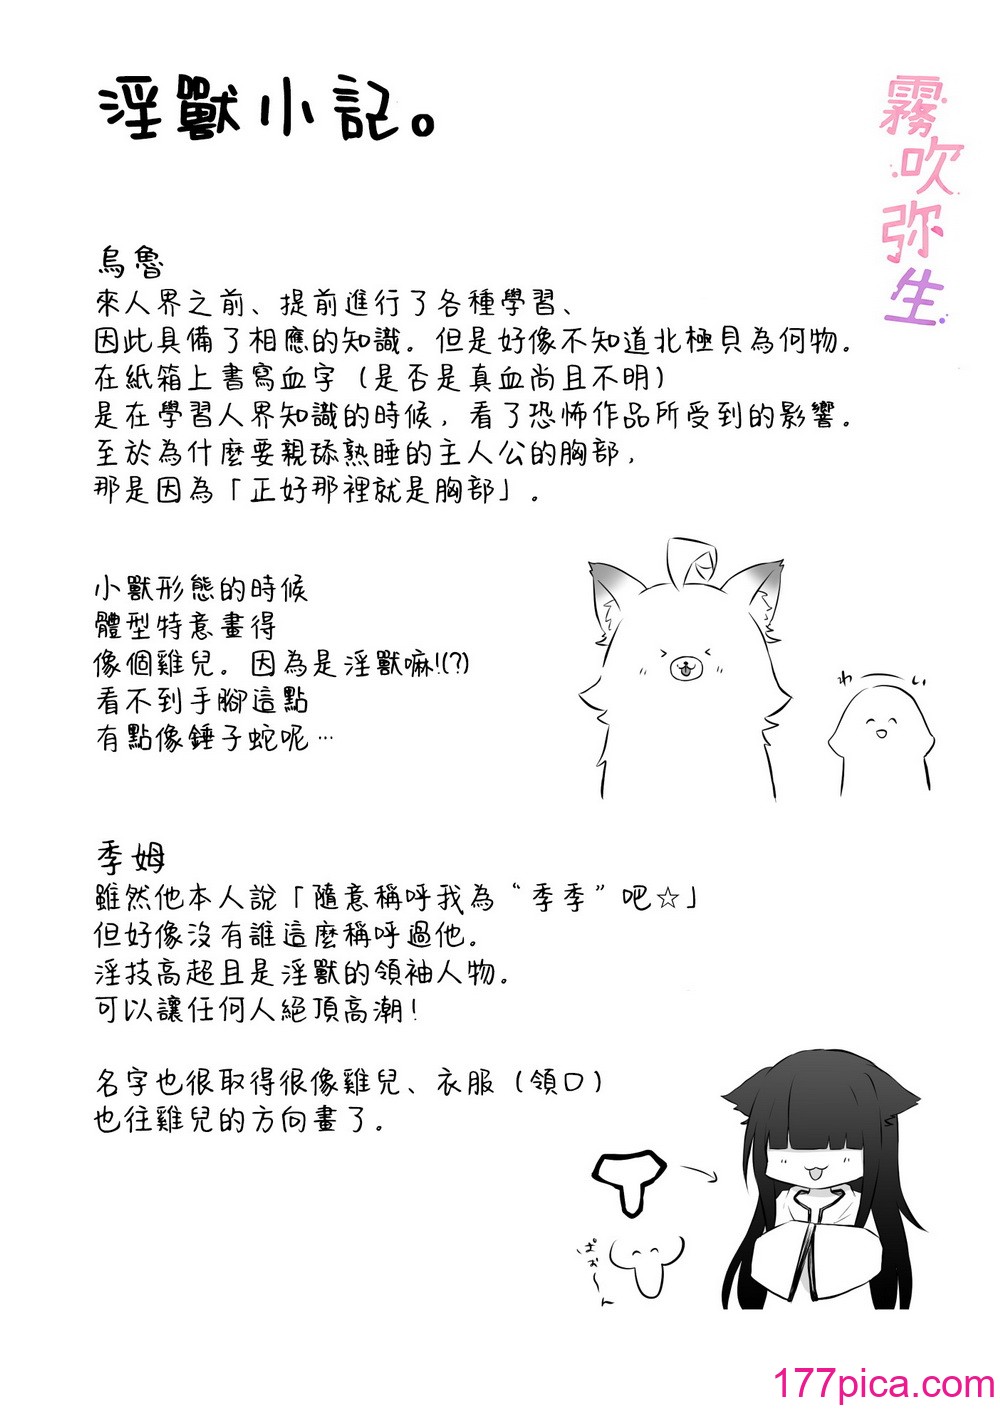 淫獸小記。
霧吹弥生
烏魯
來人界之前、提前進行了各種學習、
因此具備了相應的知識。但是好像不知道北極貝為何物。
在紙箱上書寫血字（是否是真血尚且不明）
是在學習人界知識的時候，看了恐怖作品所受到的影響。
至於為什麼要親舔熟睡的主人公的胸部，
那是因為「正好那裡就是胸部」。
小獸形態的時候
體型特意畫得
像個雞兒。因為是淫獸嘛!(?)
看不到手腳這點
有點像錘子蛇呢…
わ
い
季姆
雖然他本人說「隨意稱呼我為“季季”吧☆」
但好像沒有誰這麼稱呼過他。
淫技高超且是淫獸的領袖人物。
可以讓任何人絕頂高潮！
名字也很取得很像雞兒、衣服（領口）
也往雞兒的方向畫了。
ぱぉ～ん
177pica.com